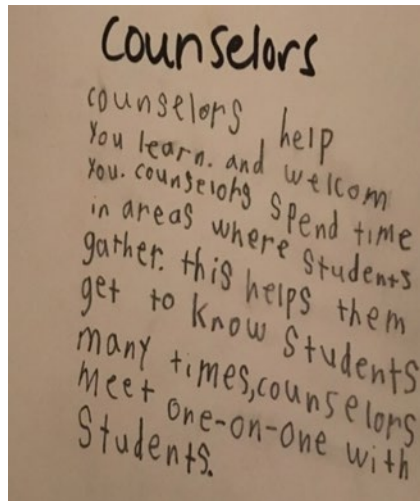 Counselors
counselors help
You learn. and welcom
You. counselors Spend time
in areas where Students
gather. this helps them
get to know Students
many times, counselors
meet one-on-one with
Students.